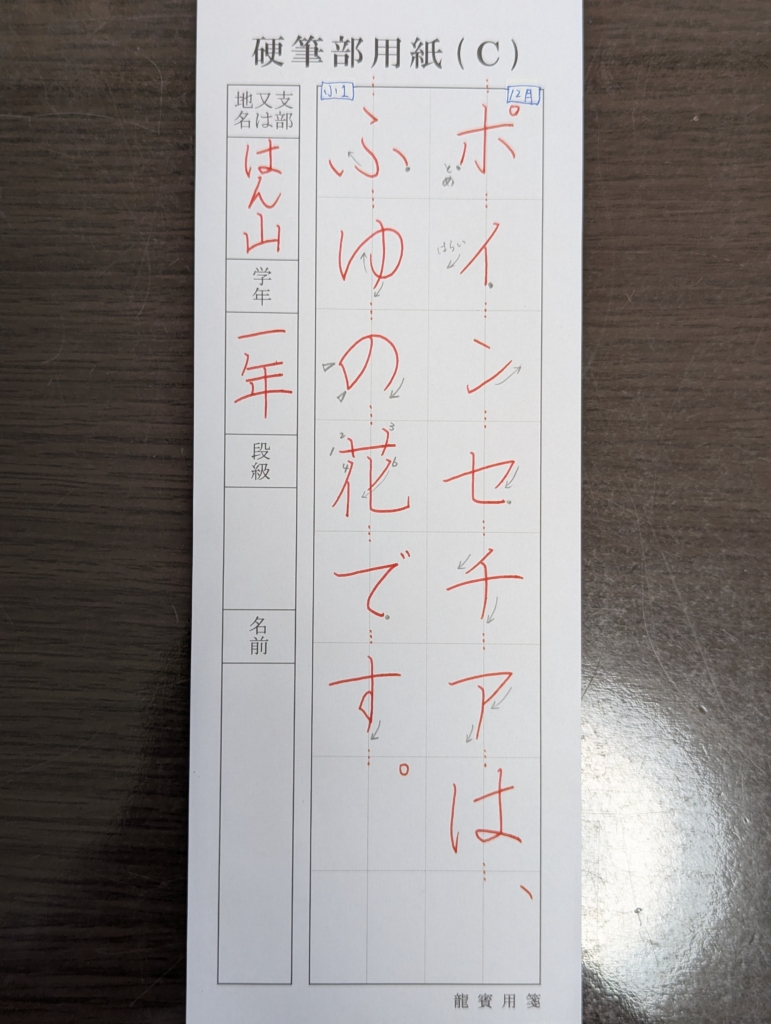 硬筆部用紙(C)
12月
小1
ポインセチアは、
とめ
はらい
ふゆの花です。
1 2 3 4 6
地名又は支部
はん山
学年
一年
段級
名前
龍賓用箋